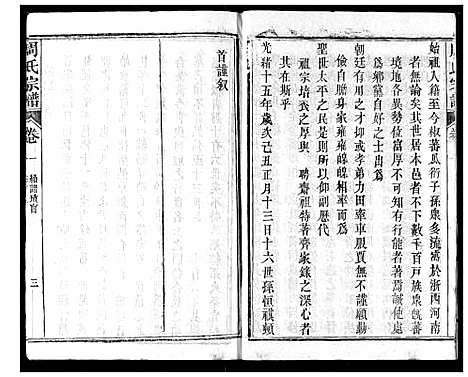 始祖入籍至今椒蕃瓜衍子孫衆多流寓於浙西河南
者無論矣其世居本邑者不下數千百戸族衆既
境地各異勢位富厚不可知中有行能者著誠使處
爲鄉黨自好之士出爲
朝廷有用之才抑或孝弟力田牽車服賈無不謹願勤
儉自贍身家雍雍皥皥相率而爲
聖世太平之民以副歷代
祖宗培植之厚與 聘齋祖特著齊家錄之深心者
其在斯乎
光緒十五年歲次己丑正月十三日十六世孫恒祺頓
首謹叙
周氏宗譜
卷一
三